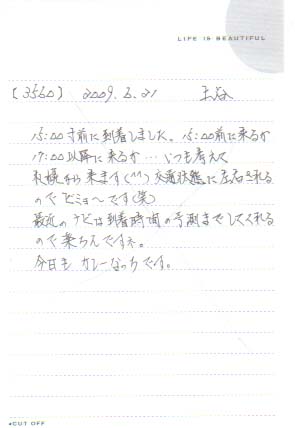 LIFE IS BEAUTIFUL
[3560] 2009.6.21 玉谷
15:00寸前に到着しました。15:00前に来るか
17:00以降に来るか…いつも考えて
札幌から来ます(^^) 交通状態に左右される
のでビミョ〜です(笑)
最近のナビは到着時間の予測までしてくれる
ので楽ちんですネ。
今日も カレーなっちです。
CUT OFF